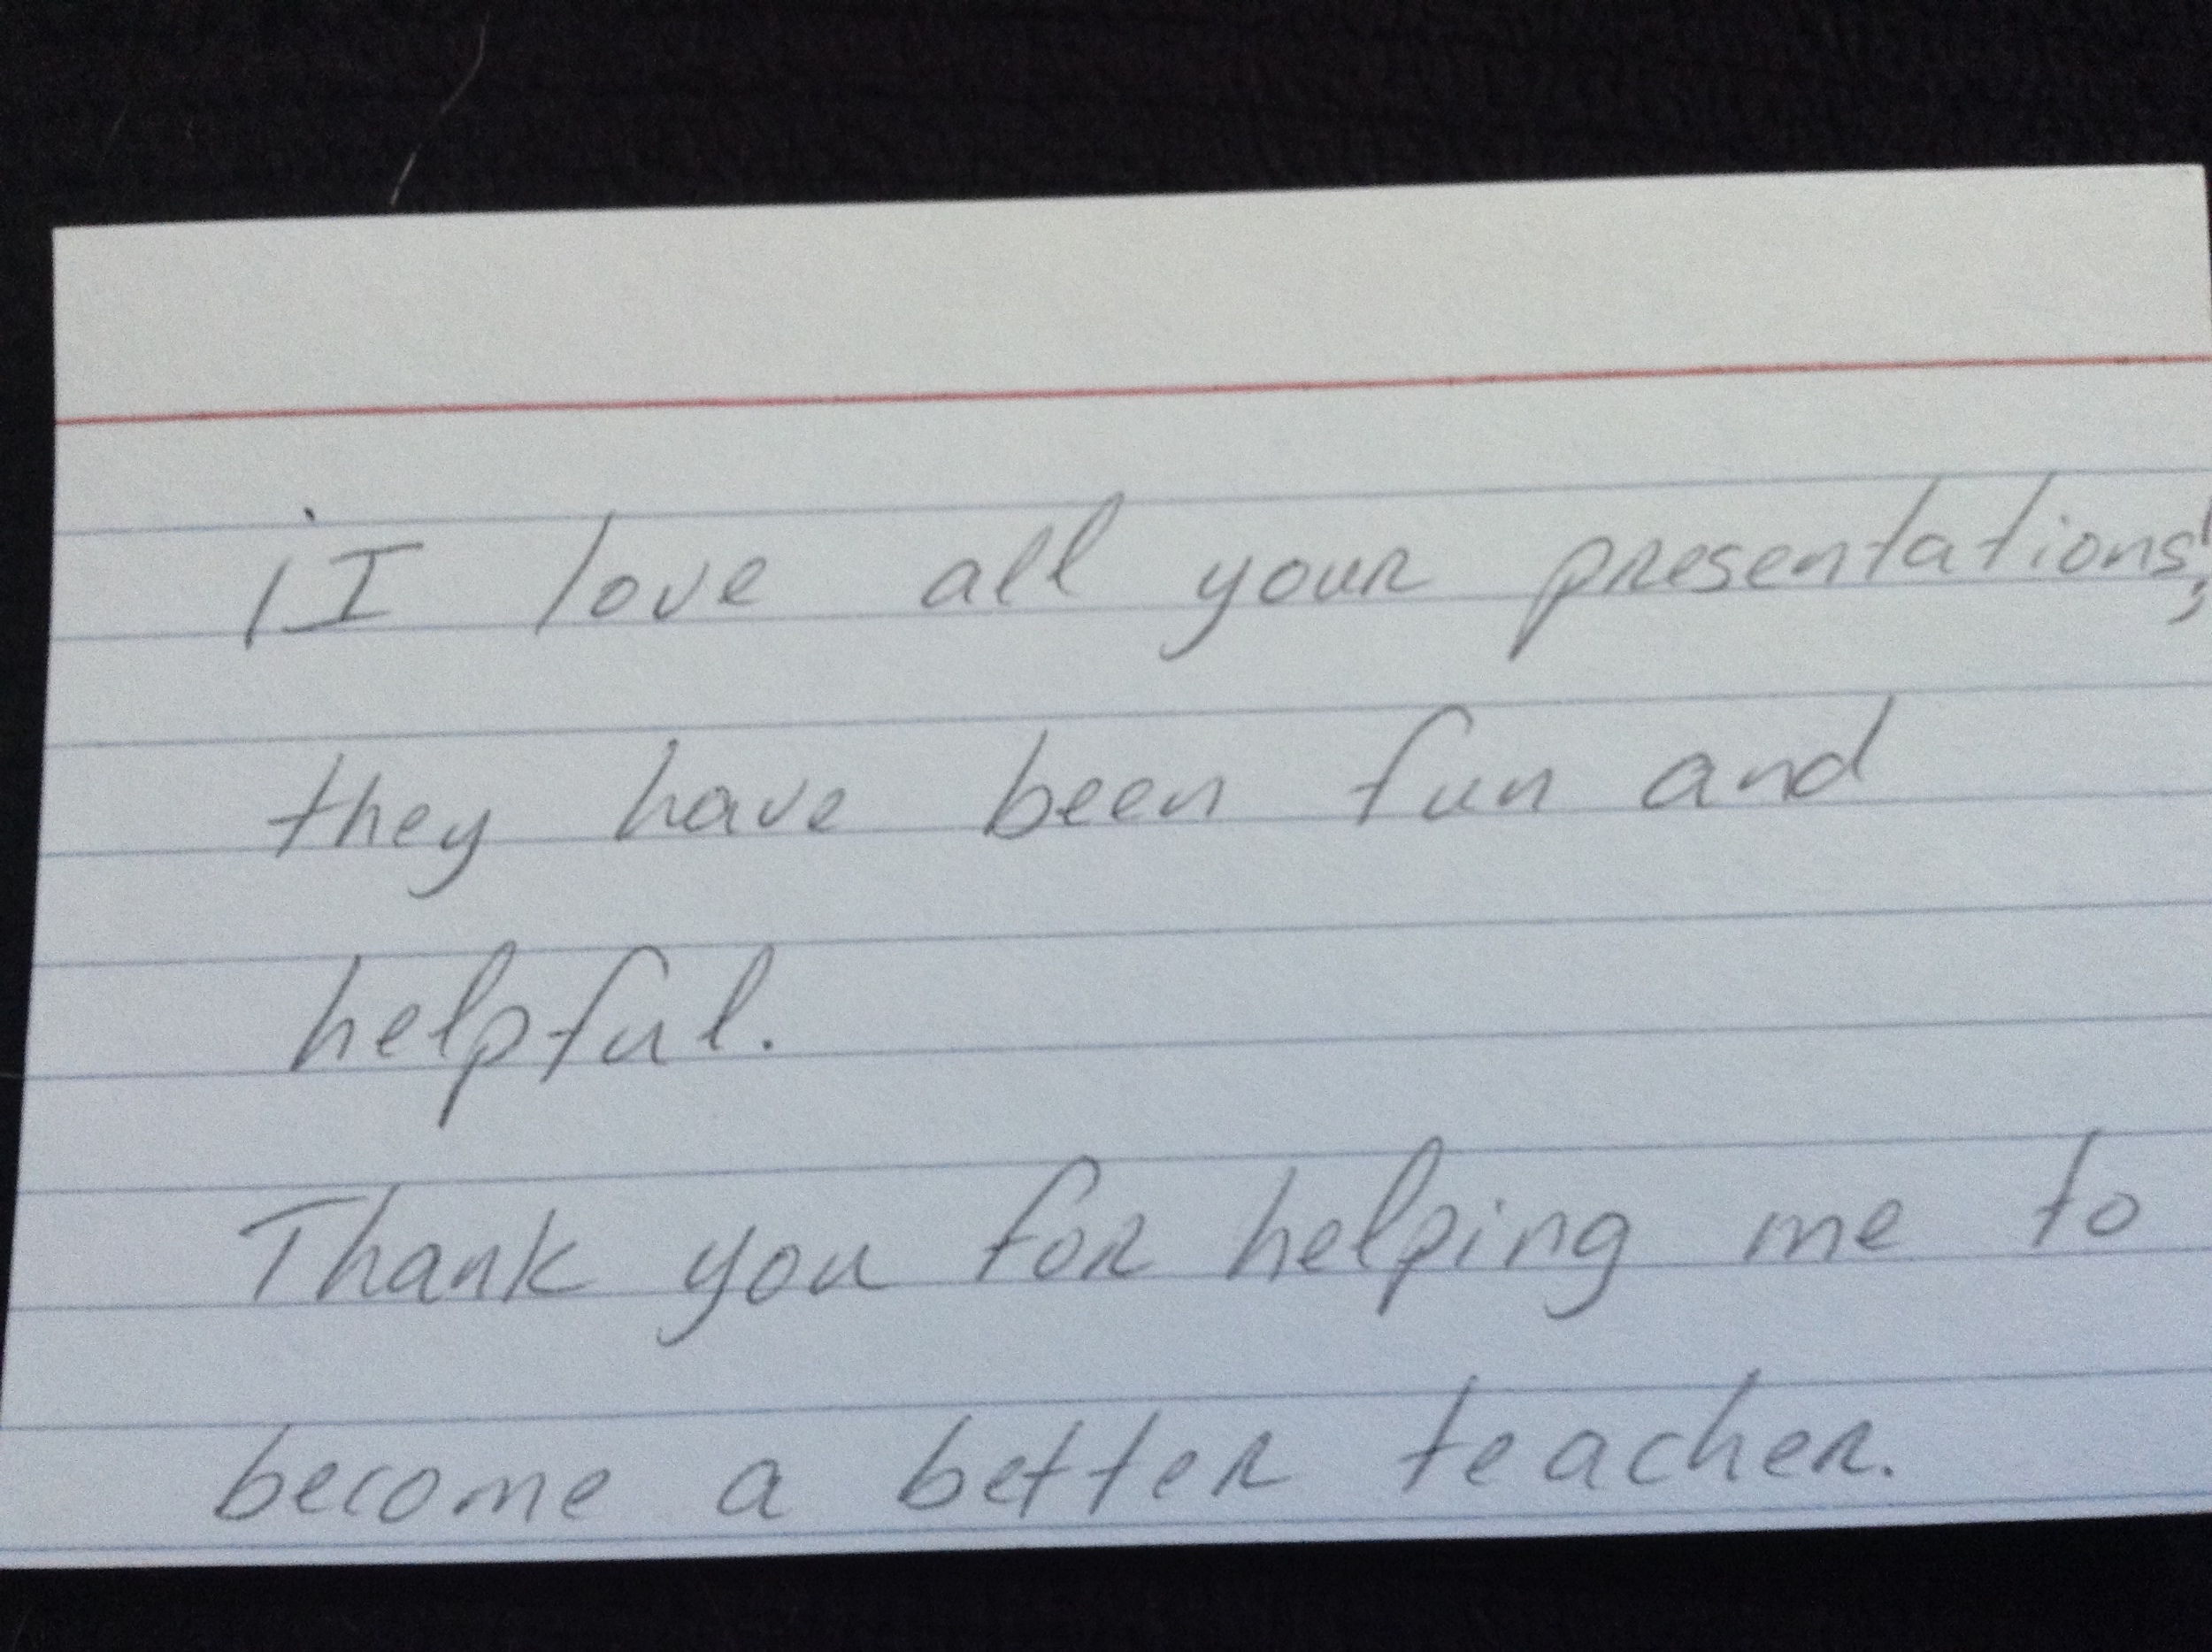 ¡I love all your presentations!,
they have been fun and
helpful.
Thank you for helping me to
become a better teacher.